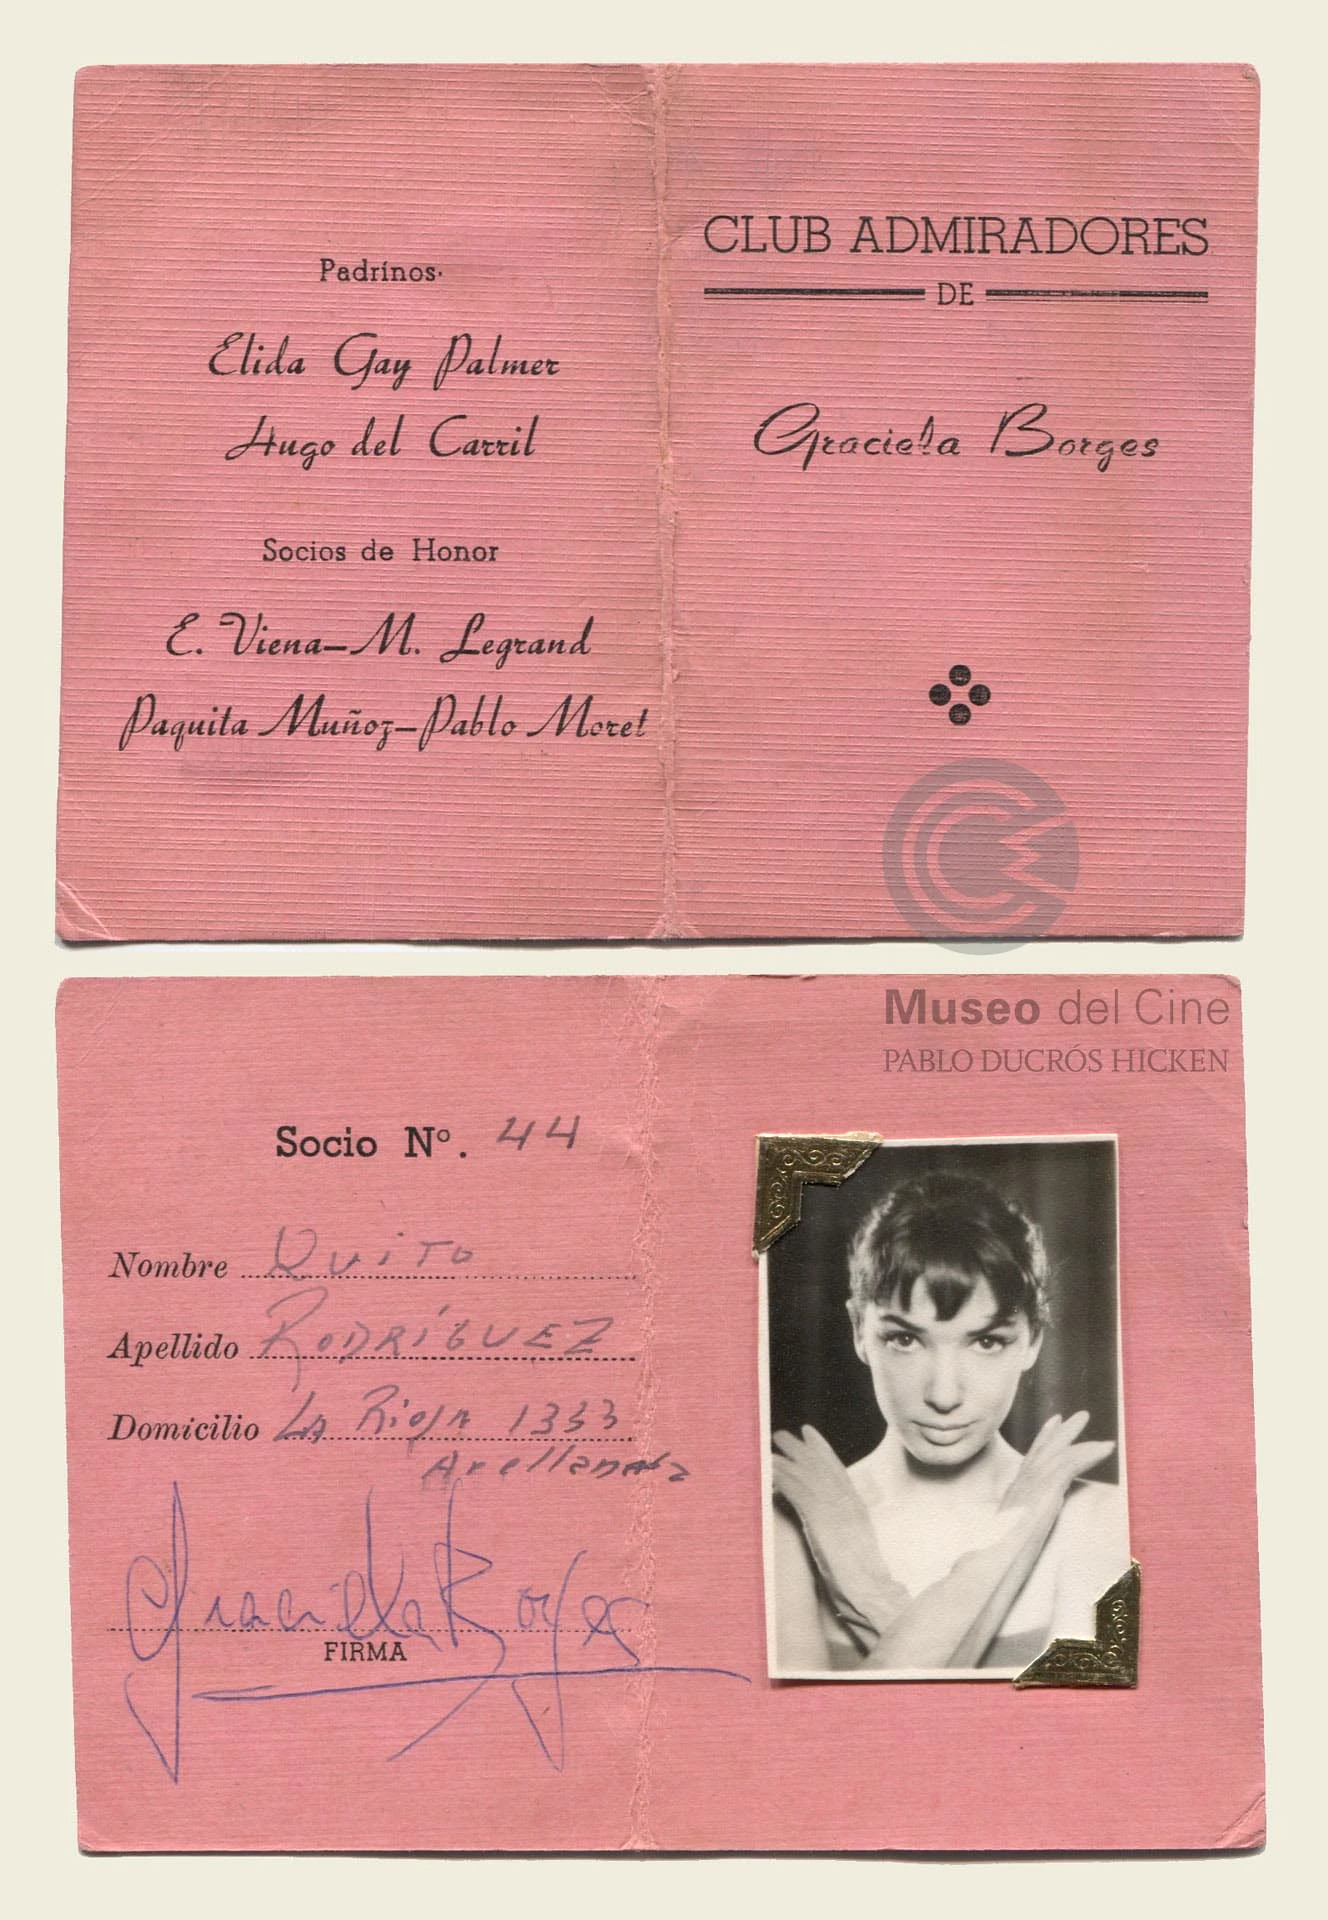 Padrinos.
Elida Gay Palmer
Hugo del Carril
Socios de Honor
E. Viena—M. Legrand
Paquita Muñoz—Pablo Moret
CLUB ADMIRADORES
DE
Graciela Borges
Museo del Cine
PABLO DUCRÓS HICKEN
Socio Nº. 44
Nombre QUITO
Apellido RODRÍGUEZ
Domicilio LA Rioja 1333
Avellaneda
Graciela Borges
FIRMA